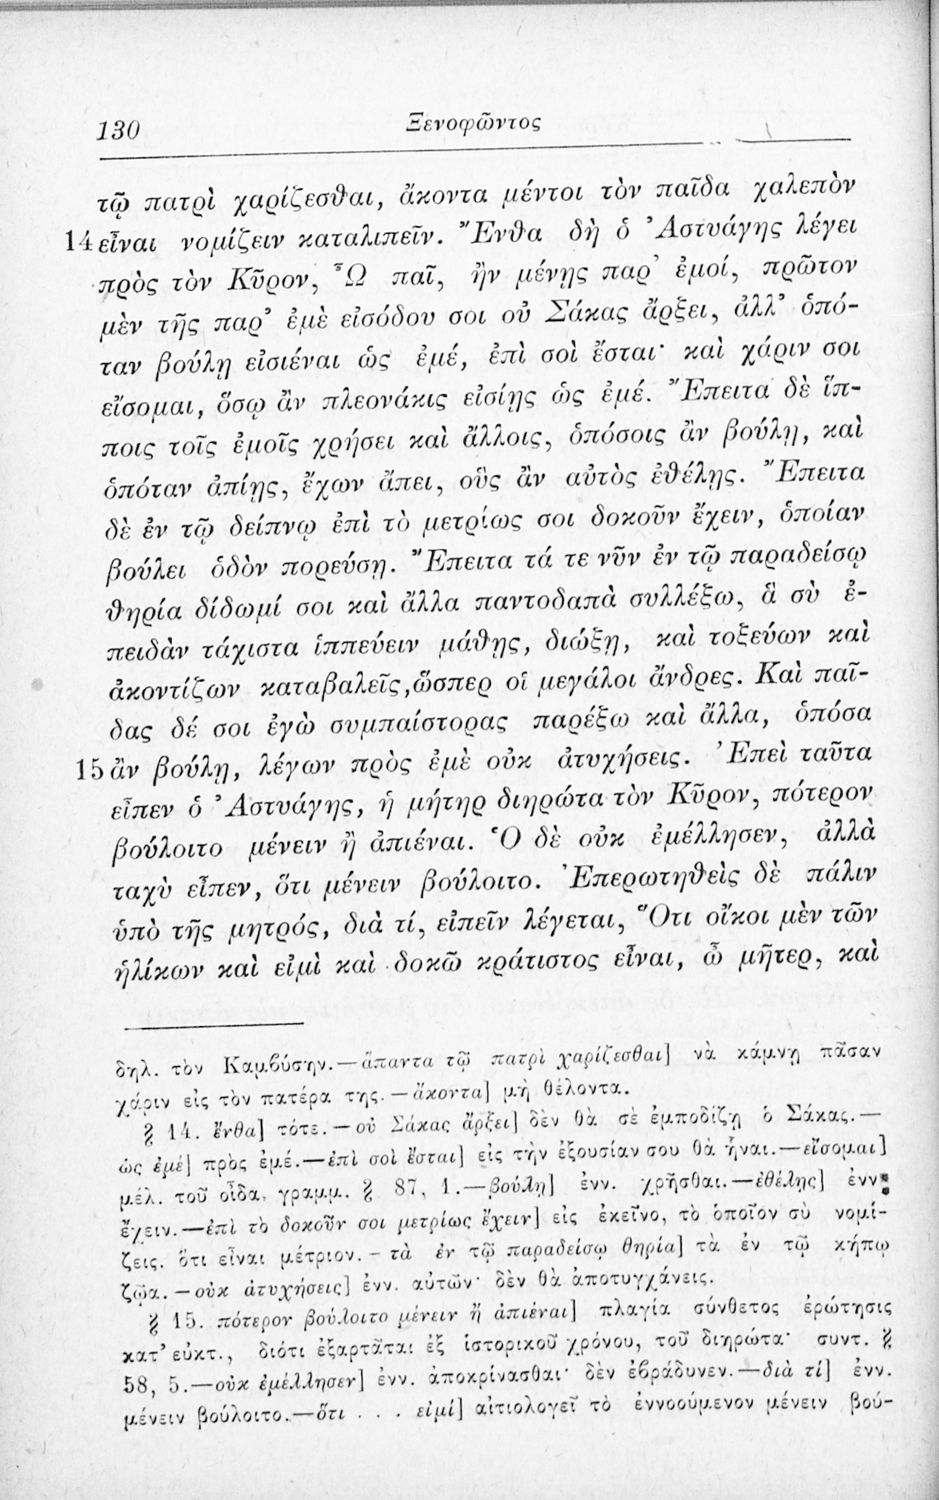 130
Ξενοφῶντος
τῷ πατρὶ χαρίζεσθαι, ἄκοντα μέντοι τὸν παῖδα χαλεπὸν
14 εἶναι νομίζειν καταλιπεῖν. Ἔνθα δὴ ὁ Ἀστυάγης λέγει
πρὸς τὸν Κῦρον, Ὦ παῖ, ἢν μένῃς παρ' ἐμοί, πρῶτον
μὲν τῆς παρ' ἐμὲ εἰσόδου σοι οὐ Σάκας ἄρξει, ἀλλ' ὁπό-
ταν βούλῃ εἰσιέναι ὡς ἐμέ, ἐπὶ σοὶ ἔσται· καὶ χάριν σοι
εἴσομαι, ὅσῳ ἂν πλεονάκις εἰσίῃς ὡς ἐμέ. Ἔπειτα δὲ ἵπ-
ποις τοῖς ἐμοῖς χρήσει καὶ ἄλλοις, ὁπόσοις ἂν βούλῃ, καὶ
ὁπόταν ἀπίῃς, ἔχων ἄπει, οὓς ἂν αὐτὸς ἐθέλῃς. Ἔπειτα
δὲ ἐν τῷ δείπνῳ ἐπὶ τὸ μετρίως σοι δοκοῦν ἔχειν, ὁποίαν
βούλει ὁδὸν πορεύσῃ. Ἔπειτα τά τε νῦν ἐν τῷ παραδείσῳ
θηρία δίδωμί σοι καὶ ἄλλα παντοδαπὰ συλλέξω, ἃ σὺ ἐ-
πειδὰν τάχιστα ἱππεύειν μάθῃς, διώξῃ, καὶ τοξεύων καὶ
ἀκοντίζων καταβαλεῖς, ὥσπερ οἱ μεγάλοι ἄνδρες. Καὶ παῖ-
δας δέ σοι ἐγὼ συμπαίστορας παρέξω καὶ ἄλλα, ὁπόσα
15 ἂν βούλῃ, λέγων πρὸς ἐμὲ οὐκ ἀτυχήσεις. Ἐπεὶ ταῦτα
εἶπεν ὁ Ἀστυάγης, ἡ μήτηρ διηρώτα τὸν Κῦρον, πότερον
βούλοιτο μένειν ἢ ἀπιέναι. Ὁ δὲ οὐκ ἐμέλλησεν, ἀλλὰ
ταχὺ εἶπεν, ὅτι μένειν βούλοιτο. Ἐπερωτηθεὶς δὲ πάλιν
ὑπὸ τῆς μητρός, διὰ τί, εἰπεῖν λέγεται, Ὅτι οἴκοι μὲν τῶν
ἡλίκων καὶ εἰμὶ καὶ δοκῶ κράτιστος εἶναι, ὦ μῆτερ, καὶ
δηλ. τὸν Καμβύσην.—ἅπαντα τῷ πατρὶ χαρίζεσθαι] νὰ κάμνῃ πᾶσαν
χάριν εἰς τὸν πατέρα της.—ἄκοντα] μὴ θέλοντα.
§ 14. ἔνθα] τότε.—οὐ Σάκας ἄρξει] δὲν θὰ σὲ ἐμποδίζῃ ὁ Σάκας.—
ὡς ἐμέ] πρὸς ἐμέ.—ἐπὶ σοὶ ἔσται] εἰς τὴν ἐξουσίαν σου θὰ ἦναι.—εἴσομαι]
μέλ. τοῦ οἶδα, γραμμ. § 87, 1.—βούλῃ] ἐνν. χρῆσθαι.—ἐθέλῃς] ἐνν.
ἔχειν.—ἐπὶ τὸ δοκοῦν σοι μετρίως ἔχειν] εἰς ἐκεῖνο, τὸ ὁποῖον σὺ νομί-
ζεις. ὅτι εἶναι μέτριον.—τὰ ἐν τῷ παραδείσῳ θηρία] τὰ ἐν τῷ κήπῳ
ζῷα.—οὐκ ἀτυχήσεις] ἐνν. αὐτῶν· δὲν θὰ ἀποτυγχάνεις.
§ 15. πότερον βούλοιτο μένειν ἢ ἀπιέναι] πλαγία σύνθετος ἐρώτησις
κατ' εὐκτ., διότι ἐξαρτᾶται ἐξ ἱστορικοῦ χρόνου, τοῦ διηρώτα· συντ. §
58, 5.—οὐκ ἐμέλλησεν] ἐνν. ἀποκρίνασθαι· δὲν ἐβράδυνεν.—διὰ τί] ἐνν.
μένειν βούλοιτο.—ὅτι . . . εἰμί] αἰτιολογεῖ τὸ ἐννοούμενον μένειν βού-